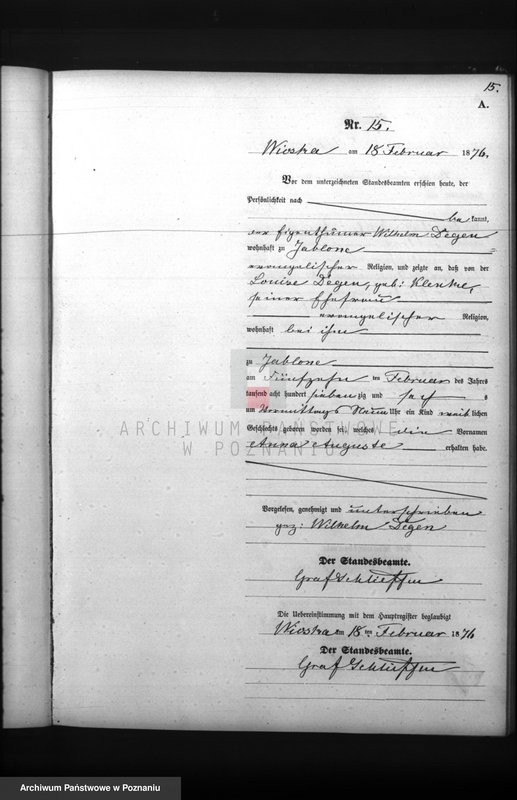 15.
A.
Nr. 15.
Wioska am 18 Februar 1876.
Vor dem unterzeichneten Standesbeamten erschien heute, der
Persönlichkeit nach
bekannt,
der Eigenthümer Wilhelm Degen
wohnhaft zu Jablone
evangelischer Religion, und zeigte an, daß von der
Louise Degen, geb: Klenke,
seiner Ehefrau
evangelischer Religion,
wohnhaft bei ihm
zu Jablone
am Fünfzehn ten Februar des Jahres
tausend acht hundert siebenzig und sechs
um Vormittags Neun Uhr ein Kind weiblichen
Geschlechts geboren worden sei, welches die Vornamen
Anna Auguste erhalten habe.
ARCHIWUM PAŃSTWOWE
W POZNANIU
Vorgelesen, genehmigt und unterschrieben
gez: Wilhelm Degen
Der Standesbeamte.
Graf Schlieffen
Die Uebereinstimmung mit dem Hauptregister beglaubigt
Wioska am 18 ten Februar 1876
Der Standesbeamte.
Graf Schlieffen
Archiwum Państwowe w Poznaniu